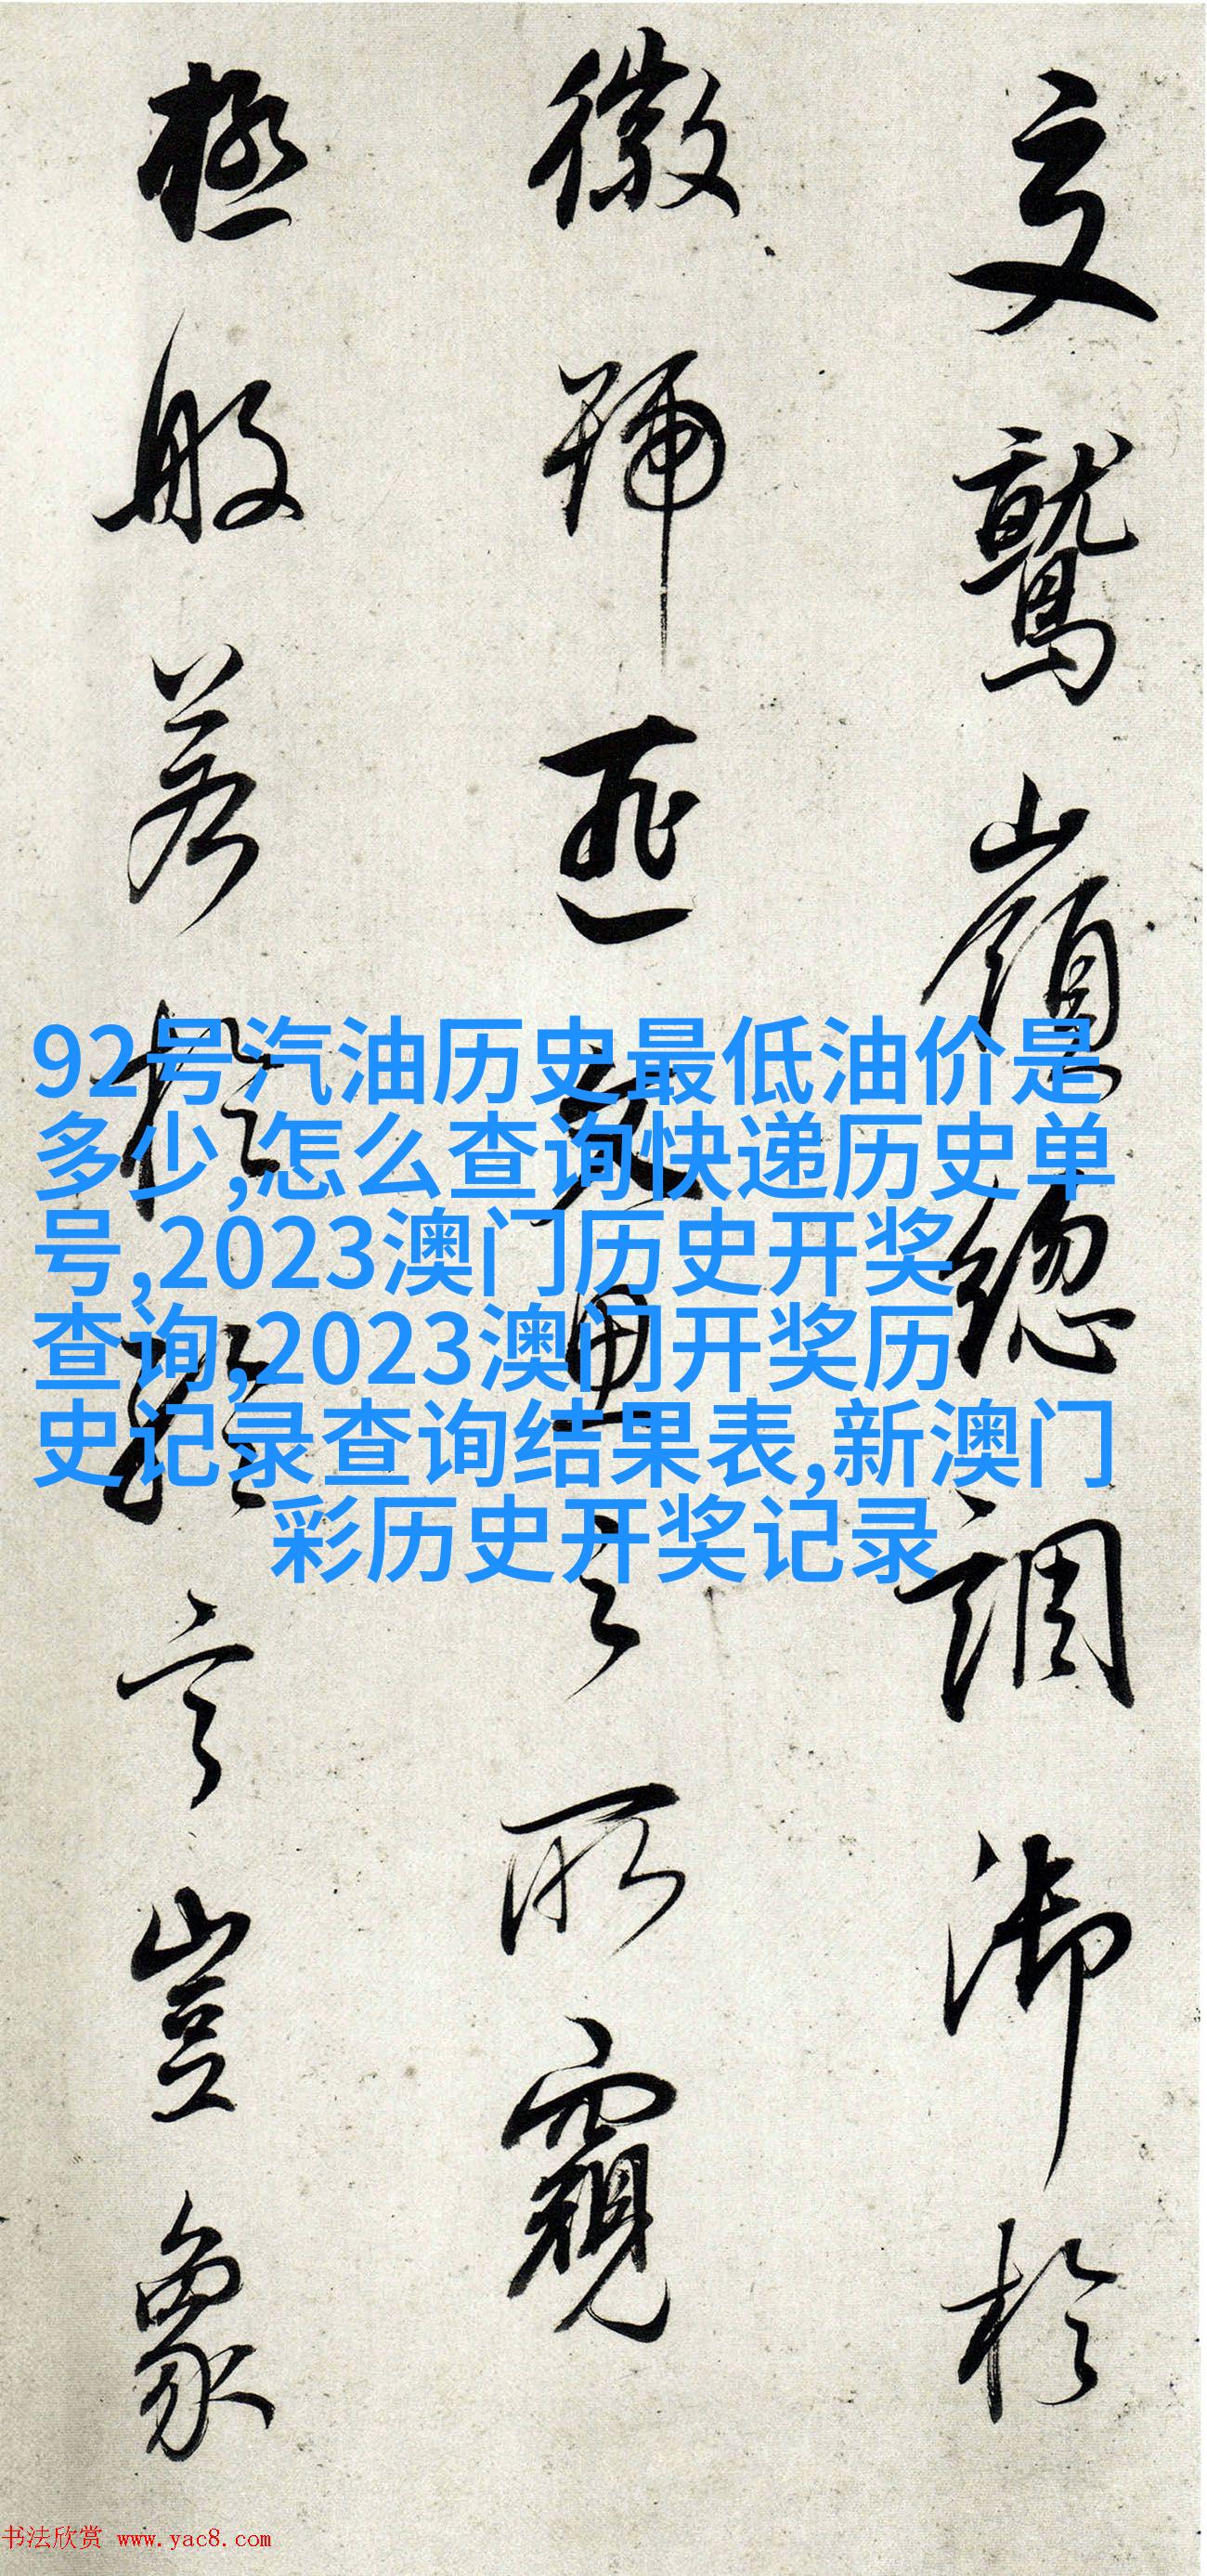 文鷲嶺總調御於
徽號匪文思之所窺
極般若於言豈象
92号汽油历史最低油价是
多少,怎么查询快递历史单
号,2023澳门历史开奖
查询,2023澳门开奖历
史记录查询结果表,新澳门
彩历史开奖记录
书法欣赏 www.yac8.com